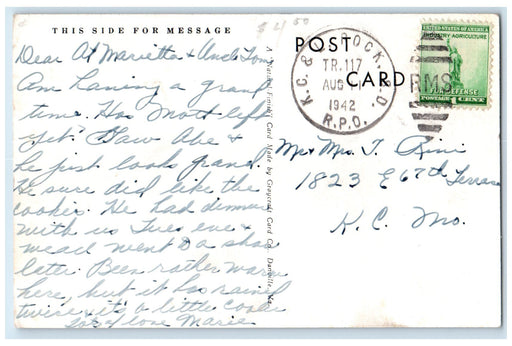 $4.00
THIS SIDE FOR MESSAGE
Dear At Marietta & Uncle Tom
Am having a grand
time. Has Mort left
yet? Saw Abe &
he just looks grand.
He sure did like the
cookies. He had dinner
with us Tues eve &
we all went to a show
later. Been rather warm
here, but it has rained
twice & it's a little cooler
Lots of love Marie
A "Natural Finish" Card Made by Graycraft Card Co., Danville, Va.
POST
CARD
K.C. & ROCK. R.P.O.
TR. 117
AUG 11
1942
R.P.O.
RMS
UNITED STATES OF AMERICA
INDUSTRY AGRICULTURE
FOR DEFENSE
POSTAGE 1 CENT
Mr & Mrs. T.
1823 E 67th Terrace
K. C. Mo.